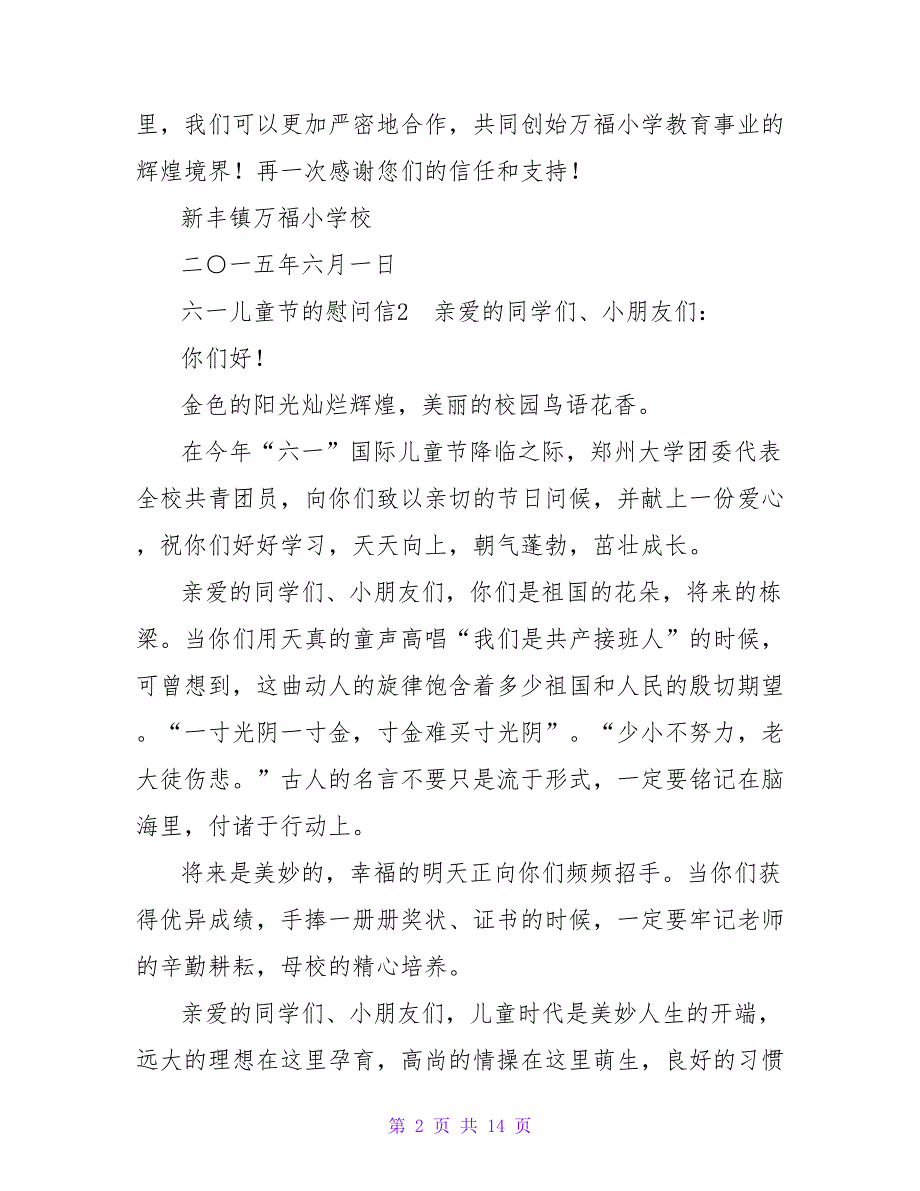 里，我们可以更加严密地合作，共同创始万福小学教育事业的
辉煌境界！再一次感谢您们的信任和支持！
新丰镇万福小学校
二〇一五年六月一日
六一儿童节的慰问信2　亲爱的同学们、小朋友们：
你们好！
金色的阳光灿烂辉煌，美丽的校园鸟语花香。
在今年“六一”国际儿童节降临之际，郑州大学团委代表
全校共青团员，向你们致以亲切的节日问候，并献上一份爱心
，祝你们好好学习，天天向上，朝气蓬勃，茁壮成长。
亲爱的同学们、小朋友们，你们是祖国的花朵，将来的栋
梁。当你们用天真的童声高唱“我们是共产接班人”的时候，
可曾想到，这曲动人的旋律饱含着多少祖国和人民的殷切期望
。“一寸光阴一寸金，寸金难买寸光阴”。“少小不努力，老
大徒伤悲。”古人的名言不要只是流于形式，一定要铭记在脑
海里，付诸于行动上。
将来是美妙的，幸福的明天正向你们频频招手。当你们获
得优异成绩，手捧一册册奖状、证书的时候，一定要牢记老师
的辛勤耕耘，母校的精心培养。
亲爱的同学们、小朋友们，儿童时代是美妙人生的开端，
远大的理想在这里孕育，高尚的情操在这里萌生，良好的习惯
第 2 页 共 14 页